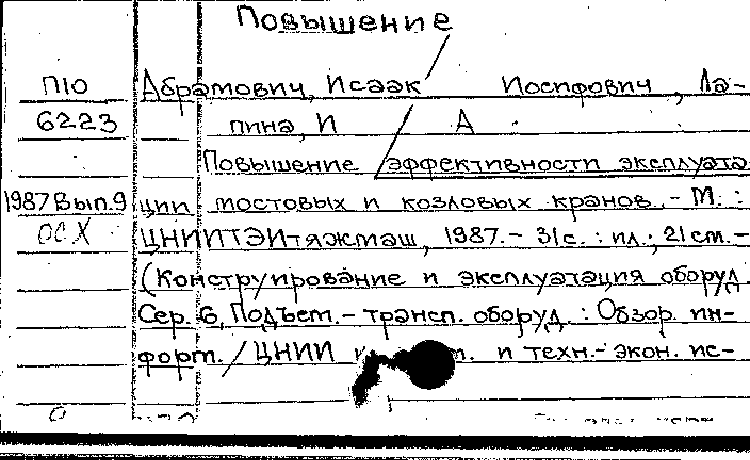 Повышение
П10 Абрамович, Исаак Иосифович, Ла-
6223 пина, И А
Повышение эффективности эксплуата
1987 Вып.9 ции мостовых и козловых кранов. - М. :
ОСХ ЦНИИТЭИтяжмаш, 1987. - 31с. : ил.; 21см. -
(Конструирование и эксплуатация оборуд.
Сер. 6, Подъем. - трансп. оборуд. : Обзор. ин-
форм. / ЦНИИ и техн.- экон. ис-